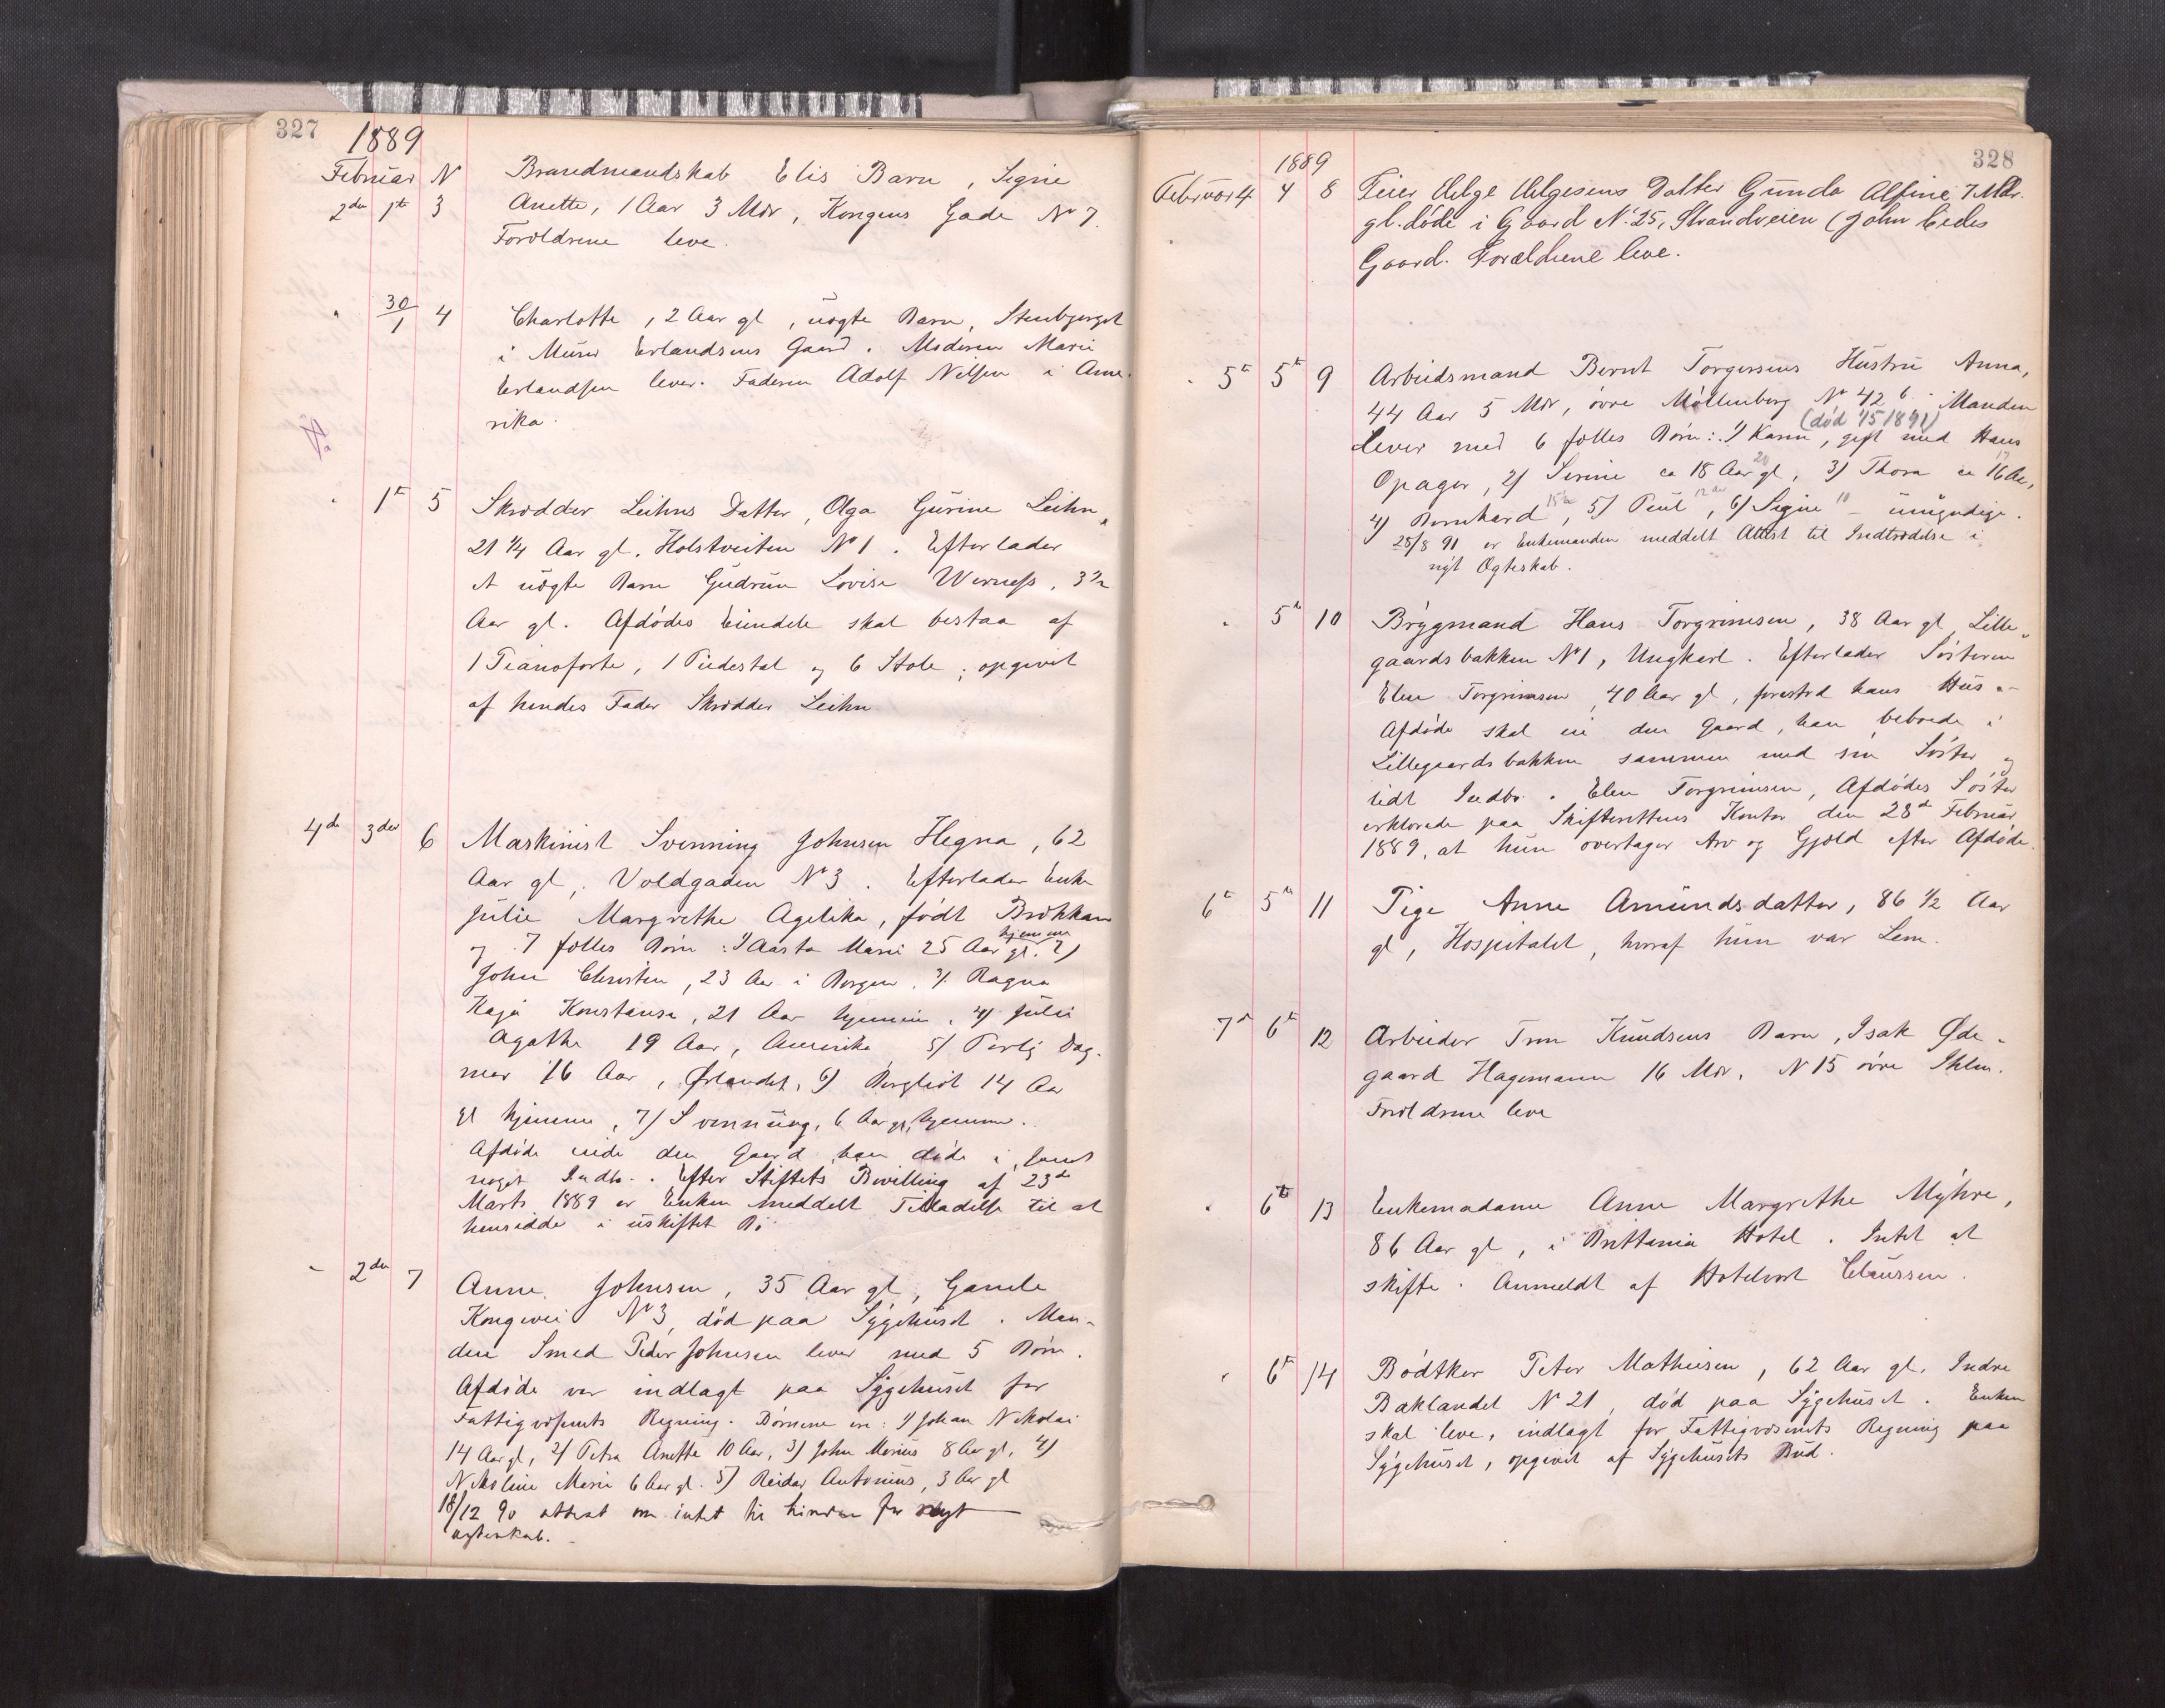 327
1889
Februar N
2den 1ste 3 Brandmandskab Elis Barn, Signe
Anette, 1 Aar 3 Mdr, Kongens Gade No 7.
Forældrene leve.
" 30/1 4 Charlotte, 2 Aar gl, uægte Barn, Stenbjerget
i Murer Erlandsens Gaard. Moderen Marie
Erlandsen lever. Faderen Adolf Nilsen i Ame-
rika.
" 1ste 5 Skrædder Leihns Datter, Olga Gurine Leihn,
21 1/4 Aar gl. Holstveiten No 1. Efterlader
et uægte Barn Gudrun Lovise Werness, 3 1/2
Aar gl. Afdødes Eiendele skal bestaa af
1 Pianoforte, 1 Piedestal og 6 Stole; opgivet
af hendes Fader Skrædder Leihn
4de 3die 6 Maskinist Svenning Johnsen Hegna, 62
Aar gl, Voldgaden No 3. Efterlader Enke
Julie Margrethe Agelika, født
og 7 fælles Børn: 1) Aasta Marie 25 Aar gl. hjemme 2)
John Christin, 23 Aar i Bergen, 3) Ragna
Kaja Konstanse, 21 Aar hjemme, 4) Julie
Agathe 19 Aar, Amerika 5) Dag-
mar 16 Aar, Ørlandet, 6) Bergliot 14 Aar
gl hjemme, 7) Svenning, 6 Aar gl, hjemme.
Afdøde eiede den Gaard han døde i, samt
noget Indbo. Efter Stiftets Bevilling af 23de
Marts 1889 er Enken meddelt Tilladelse til at
hensidde i uskiftet Bo.
- 2den 7 Anne Johnsen, 35 Aar gl, Gamle
Kongevei No 3, død paa Sygehuset. Man-
den Smed Peder Johnsen lever med 5 Børn.
Afdøde var indlagt paa Sygehuset for
Fattigvæsenets Regning. Børnene ere: 1) Johan Nikolai
14 Aar gl, 2) Petra Anette 10 Aar, 3) John Marius 8 Aar gl, 4)
Nikoline Marie 6 Aar gl. 5) Reidar Antonius, 3 Aar gl
18/12 90 attest om intet til hinder for nyt
ægteskab.
328
1889
Februar 4 4 8 Feier Helge Helgesens Datter Gunda Alfine 7 Mdr.
gl. døde i Gaard No 25, Strandveien (John
Gaard. Forældrene leve.
" 5te 5te 9 Arbeidsmand Bernt Torgersens Hustru Anna,
44 Aar 5 Mdr, øvre Møllenberg No 42 b. Manden
(død 1891)
Lever med 6 fælles Børn: 1) Karen, gift med Hans
Opager, 2) Serine ca 18 Aar gl, 3) Thora ca 16 Aar,
4) Bernhard, 5) Paul, 6) Signe - umyndige.
28/8 91 er Enkemanden meddelt Attest til Indtrædelse i
nyt Ægteskab.
" 5te 10 Brygmand Hans Torgrimsen, 38 Aar gl, Lille-
gaardsbakken No 1, Ungkarl. Efterlader Søsteren
Elen Torgrimsen, 40 Aar gl, forestod hans Hus.-
Afdøde skal eie den Gaard, han beboede i
Lillegaardsbakken sammen med sin Søster og
lidt Indbo. Elen Torgrimsen, Afdødes Søster
erklærede paa Skifterettens Kontor den 28de Februar
1889, at hun overtager Arv og Gjæld efter Afdøde.
6te 5te 11 Pige Anne Amundsdatter, 86 1/2 Aar
gl, Hospitalet, hvoraf hun var Lem.
7de 6te 12 Arbeider Knudsens Barn, Isak Øde-
gaard Hagemann 16 Mdr. N 15 øvre
Forældrene leve
" 6te 13 Enkemadame Anne Margrethe Myhre,
86 Aar gl, i Brittania Hotel. Intet at
skifte. Anmeldt af Hotelvert Claussen.
" 6te 14 Bødtker Peter Mathiesen, 62 Aar gl, Indre
Baklandet N 21, død paa Sygehuset. Enken
skal leve, indlagt for Fattigvæsenets Regning paa
Sygehuset, opgivet af Sygehusets Bud.